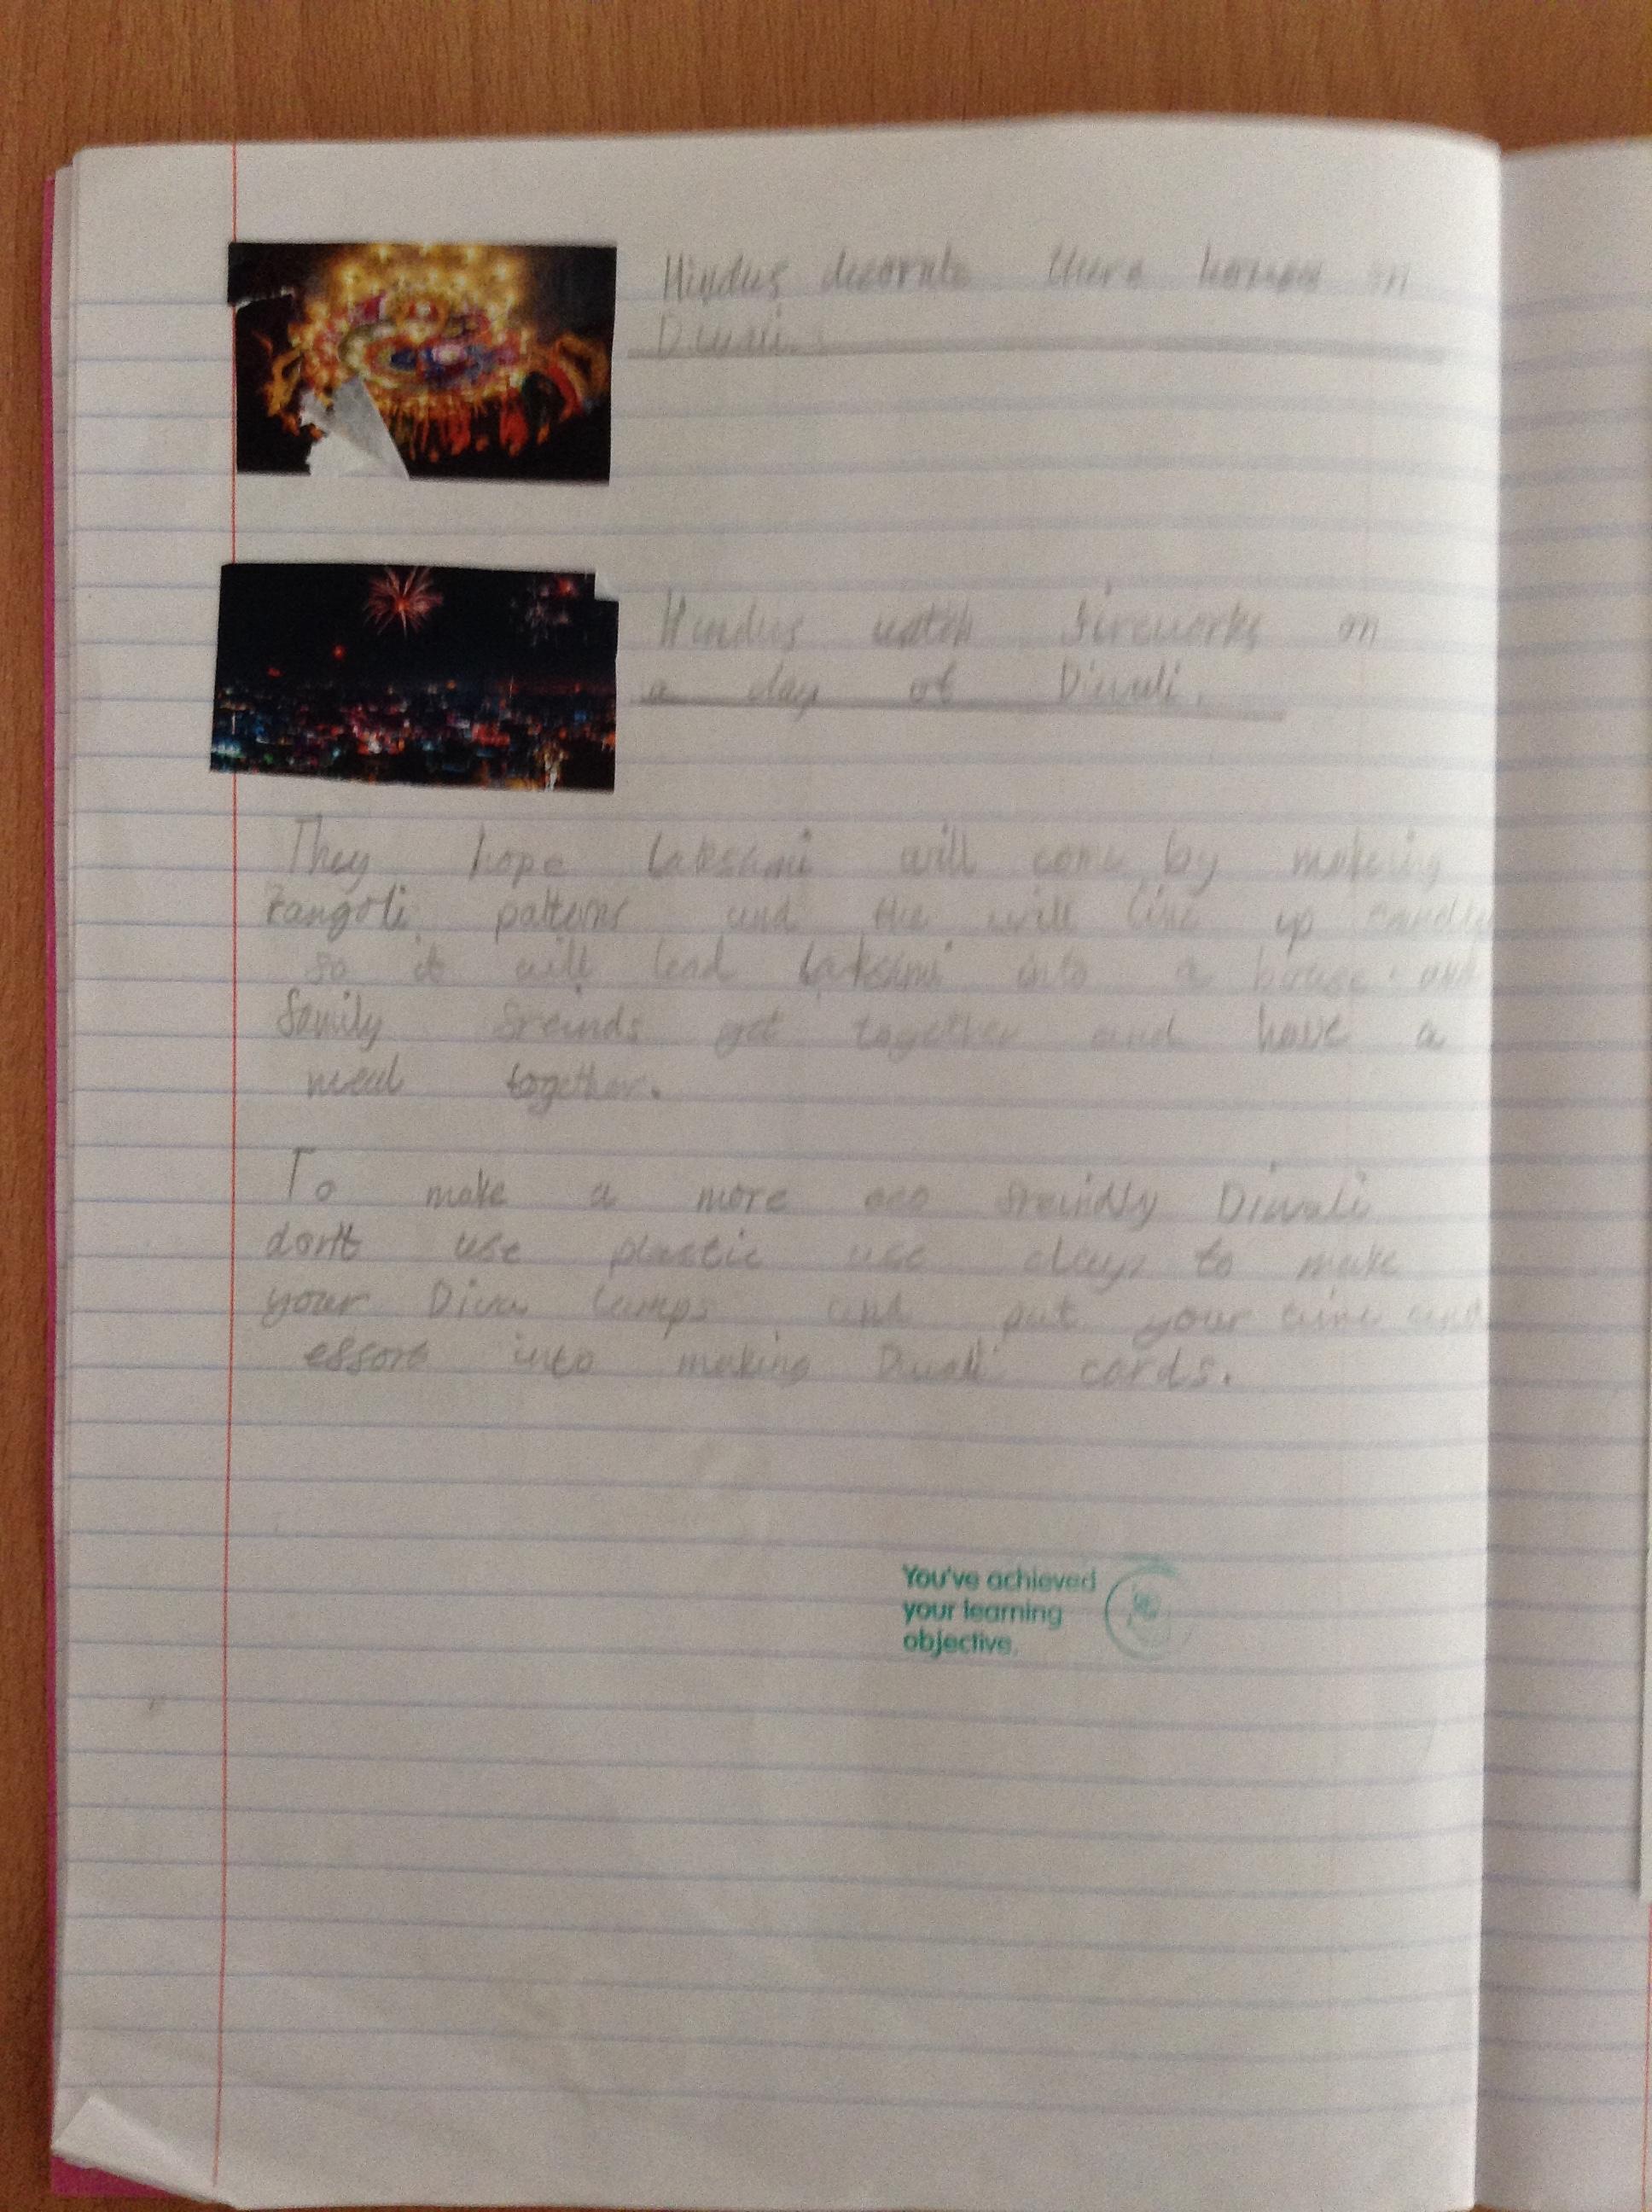 Hindus decorate there homes on
Diwali.
Hindus watch fireworks on
a day of Diwali.
They hope Lakshmi will come by makeing
rangoli patterns and the will line up candles
so it will lead Lakshmi into a house. and
family freinds get together and have a
meal together.
To make a more eco freindly Diwali
don't use plastic use clay to make
your Diva lamps and put your time and
effort into making Diwali cards.
You've achieved
your learning
objective.